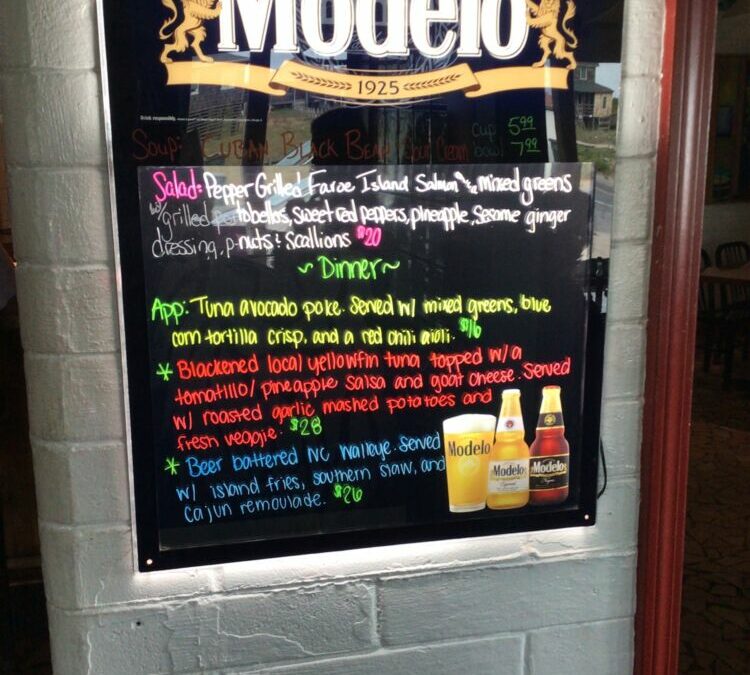 Modelo
1925
Drink responsibly.
Soup: Cuban Black Bean Sour Cream cup 5.99
bowl 7.99
Salad: Pepper Grilled Faroe Island Salmon mixed greens
w/ grilled tobellos, sweet red peppers, pineapple, sesame ginger
dressing, p-nuts & scallions $20
~ Dinner ~
App: Tuna avocado poke. Served w/ mixed greens, blue
corn tortilla crisp, and a red chili aioli. $16
* Blackened local yellowfin tuna topped w/ a
tomatillo/pineapple salsa and goat cheese. Served
w/ roasted garlic mashed potatoes and
fresh veggie. $28
* Beer battered NC Walleye. Served
w/ island fries, southern slaw, and
Cajun remoulade. $26
Modelo
Modelo
Modelo